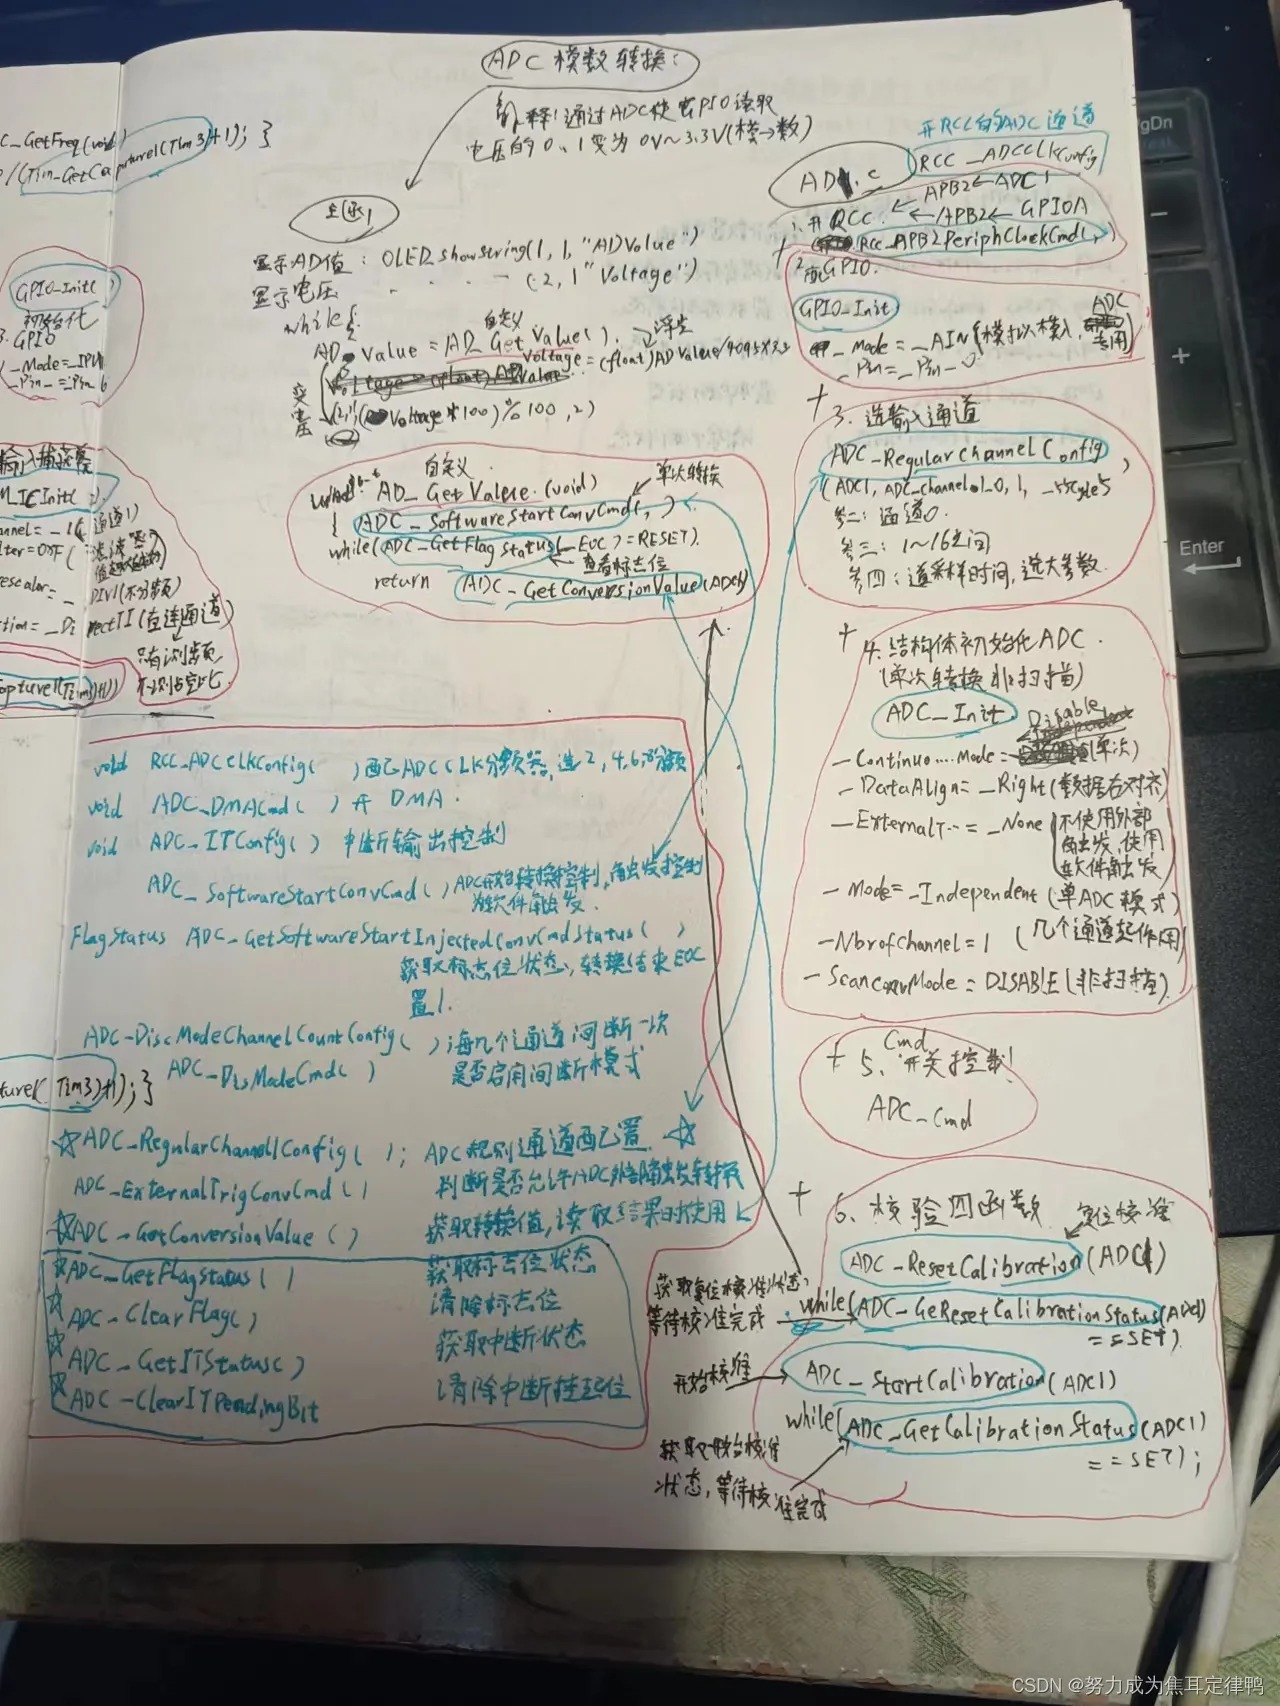 ADC 模数转换:
解释:通过ADC使GPIO读取
电压的0、1变为0V~3.3V(模→数)
C_GetFreq(void)
/(Tim_GetCapture1(TIM3)+1); }
GPIO_Init( )
初始化
3. GPIO
_Mode=_IPU
_Pin_=_Pin_6
输入捕获
M_ICInit( ),
annel=_1(通道1)
lter=0xF(滤波器
escaler=_DIV1(不分频)
tion=_DirectTI(直连通道)
只有测频
apture1(Tim3)+1)
ture( Tim3)+1); }
主函数
显示AD值: OLED_showString(1, 1, "ADValue")
显示电压 - - - - (2, 1 "Voltage")
while {
自定义
AD Value = AD_Get Value( ).
浮空
Voltage = (float)AD Value/4095*3.3
(2, (Voltage*100)%100, 2)
自定义
AD_GetValue.(void)
单次转换
{ ADC_SoftwareStartConvCmd( , )
while(ADC_GetFlagStatus(_EOC)=RESET).
查看标志位
return ADC_GetConversionValue(ADC1)
void RCC_ADCCLKConfig( )配ADCCLK分频器,选2,4,6,8分频
void ADC_DMACmd( ) 开 DMA.
void ADC_ITConfig( ) 中断输出控制
ADC_SoftwareStartConvCmd( )ADC开始转换控制,触发控制
为软件触发.
FlagStatus ADC_GetSoftwareStartInjectedConvCmdStatus( )
获取标志位状态,转换结束EOC
置1.
ADC-DiscModeChannelCountConfig( );每几个通道间断一次
ADC_DisModeCmd( ) 是否启用间断模式
☆ADC_RegularChannelConfig( ); ADC规则通道配置. ☆
ADC_ExternalTrigConvCmd( ) 判断是否允许ADC外部触发转换
☆ADC_GetConversionValue( ) 获取转换值,读取结果时使用
☆ADC_GetFlagStatus( ) 获取标志位状态
☆ADC_ClearFlag( ) 清除标志位
☆ADC_GetITStatus( ) 获取中断状态
☆ADC_ClearITPendingBit 清除中断挂起位
开RCC的ADC通道
RCC_ADCCLKConfig
AD.c
1.开RCC. ← APB2←ADC1
←APB2←GPIOA
Rcc_APB2PeriphClockCmd( , )
2.配GPIO.
GPIO_Init
_Mode=_AIN(模拟输入, ADC专用)
_Pin=_Pin_0
+ 3. 选输入通道
ADC_RegularChannelConfig
(ADC1, ADC_channel_0, 1, _55cycle5
参二:通道0.
参三:1~16之间
参四:道采样时间,选大参数.
+ 4.结构体初始化ADC.
(单次转换 非扫描)
ADC_Init
Disable
_Continuo....Mode= (单次)
_DataAlign=_Right(数据右对齐)
_ExternalT..=_None(不使用外部
触发,使用
软件触发)
_Mode=_Independent(单ADC模式)
_NbrofChannel=1 (几个通道起作用)
_ScanConvMode=DISABLE(非扫描).
Cmd
+ 5. 开关控制
ADC_Cmd
+ 6. 校验四函数
复位校准
ADC_ResetCalibration(ADC1)
获取复位校准状态,
等待校准完成
while(ADC_GeResetCalibrationStatus(ADC1)
==SET).
开始校准
ADC_StartCalibration(ADC1)
while(ADC_GetCalibrationStatus(ADC1)
==SET);
获取开始校准
状态,等待校准完成
Enter
CSDN @努力成为焦耳定律鸭